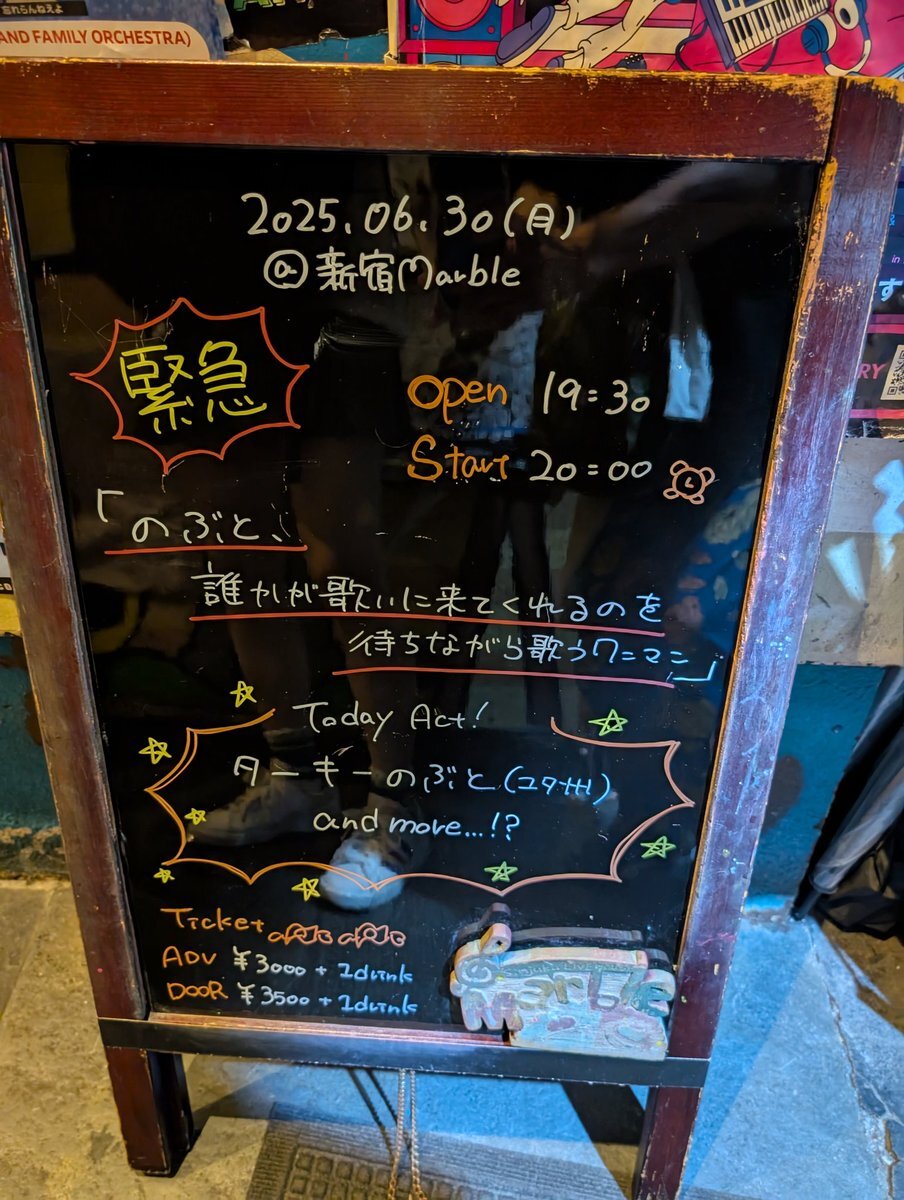 忘れらんねえよ
AND FAMILY ORCHESTRA)
2025.06.30(月)
@新宿Marble
緊急
Open 19:30
Start 20:00
「のぶと、
誰かが歌いに来てくれるのを
待ちながら歌うワンマン」
Today Act!
ターキーのぶと(ユタ州)
and more...!?
Ticket
ADV ¥3000 + 1drink
DOOR ¥3500 + 1drink
Marble
in
す
RY